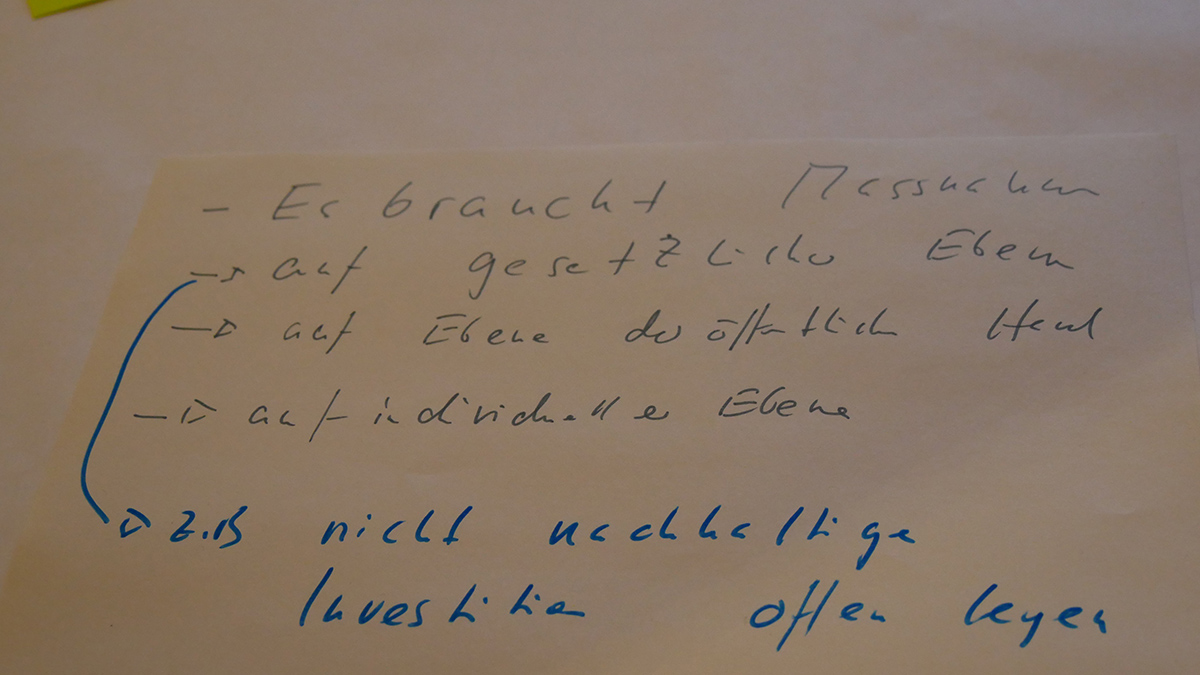 - Es braucht Massnahmen
→ auf gesetzlicher Ebene
→ auf Ebene der öffentlichen Hand
→ auf individueller Ebene
→ z.B nicht nachhaltige
Investitionen offen legen